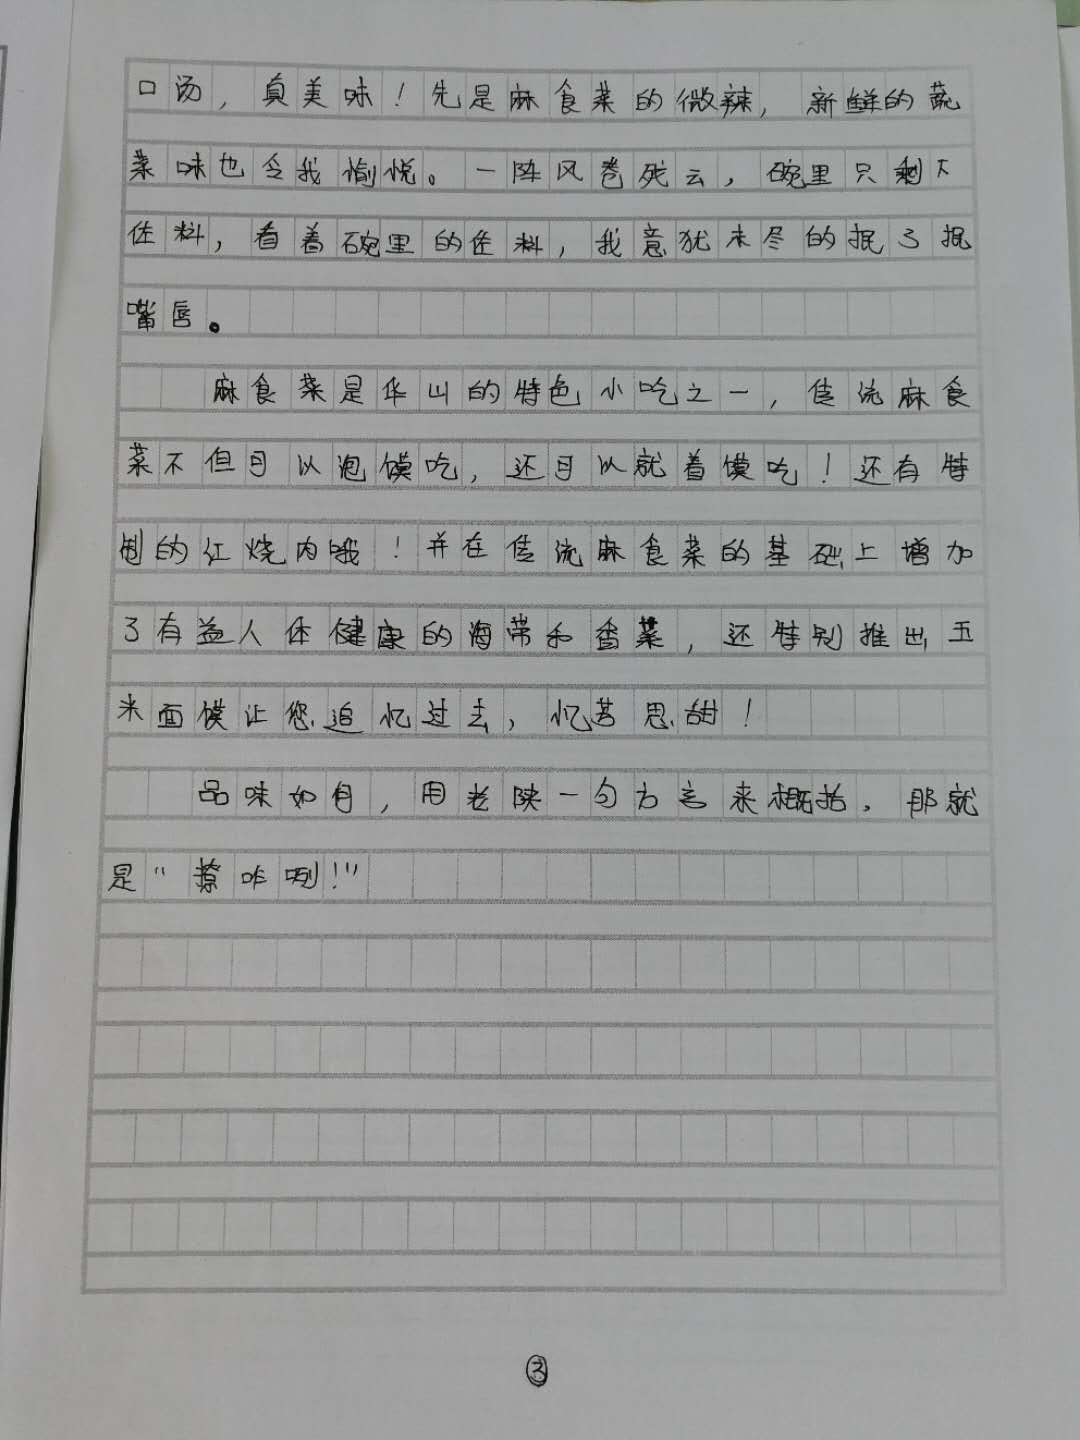 口汤，真美味！先是麻食菜的微辣，新鲜的蔬
菜味也令我愉悦。一阵风卷残云，碗里只剩下
佐料，看着碗里的佐料，我意犹未尽的抿了抿
嘴唇。
麻食菜是华山的特色小吃之一，传统麻食
菜不但可以泡馍吃，还可以就着馍吃！还有特
制的红烧肉哦！并在传统麻食菜的基础上增加
了有益人体健康的海带和香菜，还特别推出五
米面馍让您追忆过去，忆苦思甜！
品味如何，用老陕一句方言来概括，那就
是“撩咋咧！”
③